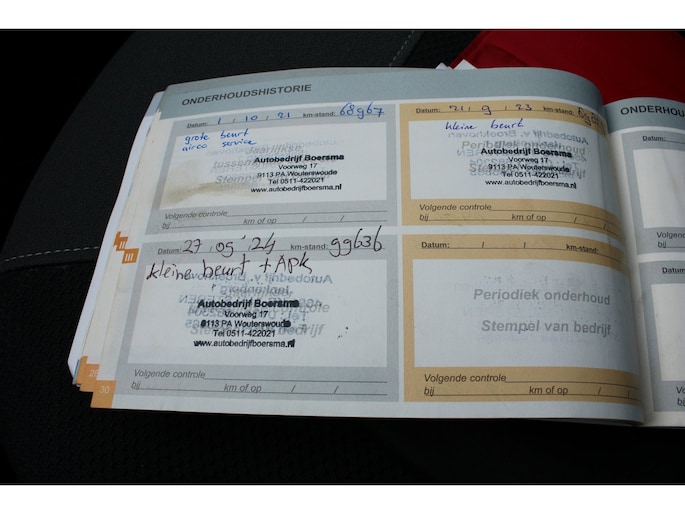 ONDERHOUDSHISTORIE
Datum: 1 / 10 / 21 km-stand: 68967
grote beurt
airco service
Autobedrijf Boersma
Voorweg 17
9113 PA Wouterswoude
Tel 0511-422021
www.autobedrijfboersma.nl
Volgende controle
bij km of op / /
Datum: 21 / 9 / 23 km-stand:
kleine beurt
Autobedrijf Boersma
Voorweg 17
9113 PA Wouterswoude
Tel 0511-422021
www.autobedrijfboersma.nl
Volgende controle
bij km of op / /
Datum: 27 / 09 / 24 km-stand: 99636
kleine beurt + APK
Autobedrijf Boersma
Voorweg 17
9113 PA Wouterswoude
Tel 0511-422021
www.autobedrijfboersma.nl
Volgende controle
bij km of op / /
Datum: / / km-stand:
Periodiek onderhoud
Stempel van bedrijf
Volgende controle
bij km of op / /
30
II
III
ONDERHOU
Datum:
Volgen
bij
Datum
Volge
bij